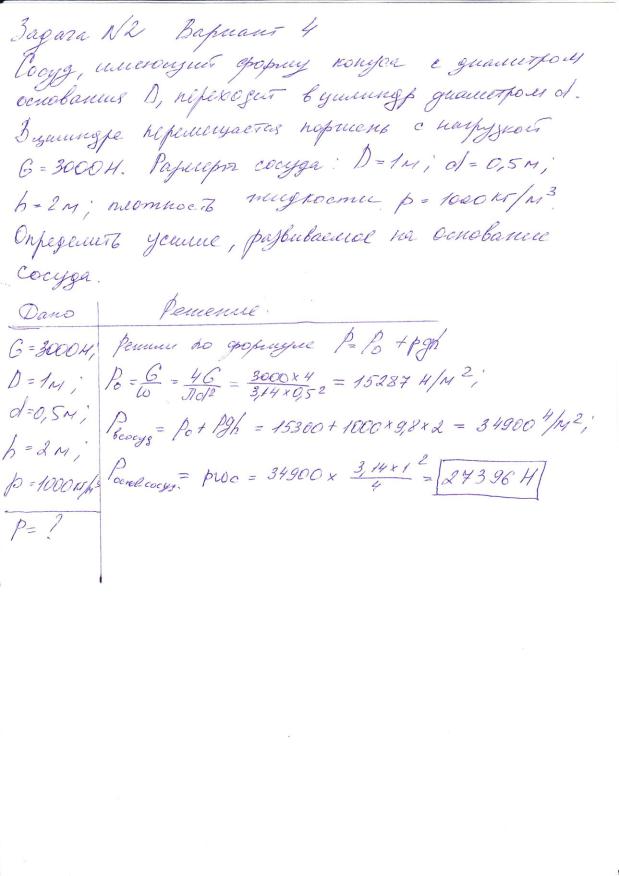 Задача №2 Вариант 4
Сосуд, имеющий форму конуса с диаметром
основания D, переходит в цилиндр диаметром d.
В цилиндре перемещается поршень с нагрузкой
G = 3000 Н. Размеры сосуда: D = 1 м; d = 0,5 м;
h = 2 м; плотность жидкости ρ = 1000 кг/м³.
Определить усилие, развиваемое на основание
сосуда.
Дано Решение.
G = 3000 Н; Решили по формуле P = P₀ + ρgh
D = 1 м; P₀ = G/ω = 4G/Пd² = 3000×4/3,14×0,5² = 15287 Н/м²;
d = 0,5 м;
h = 2 м; P в сосуд = P₀ + ρgh = 15300 + 1000×9,8×2 = 34900 Н/м²;
ρ = 1000 кг/м³ P основ сосуд. = pωc = 34900 × 3,14×1²/4 = 27396 Н
P = ?